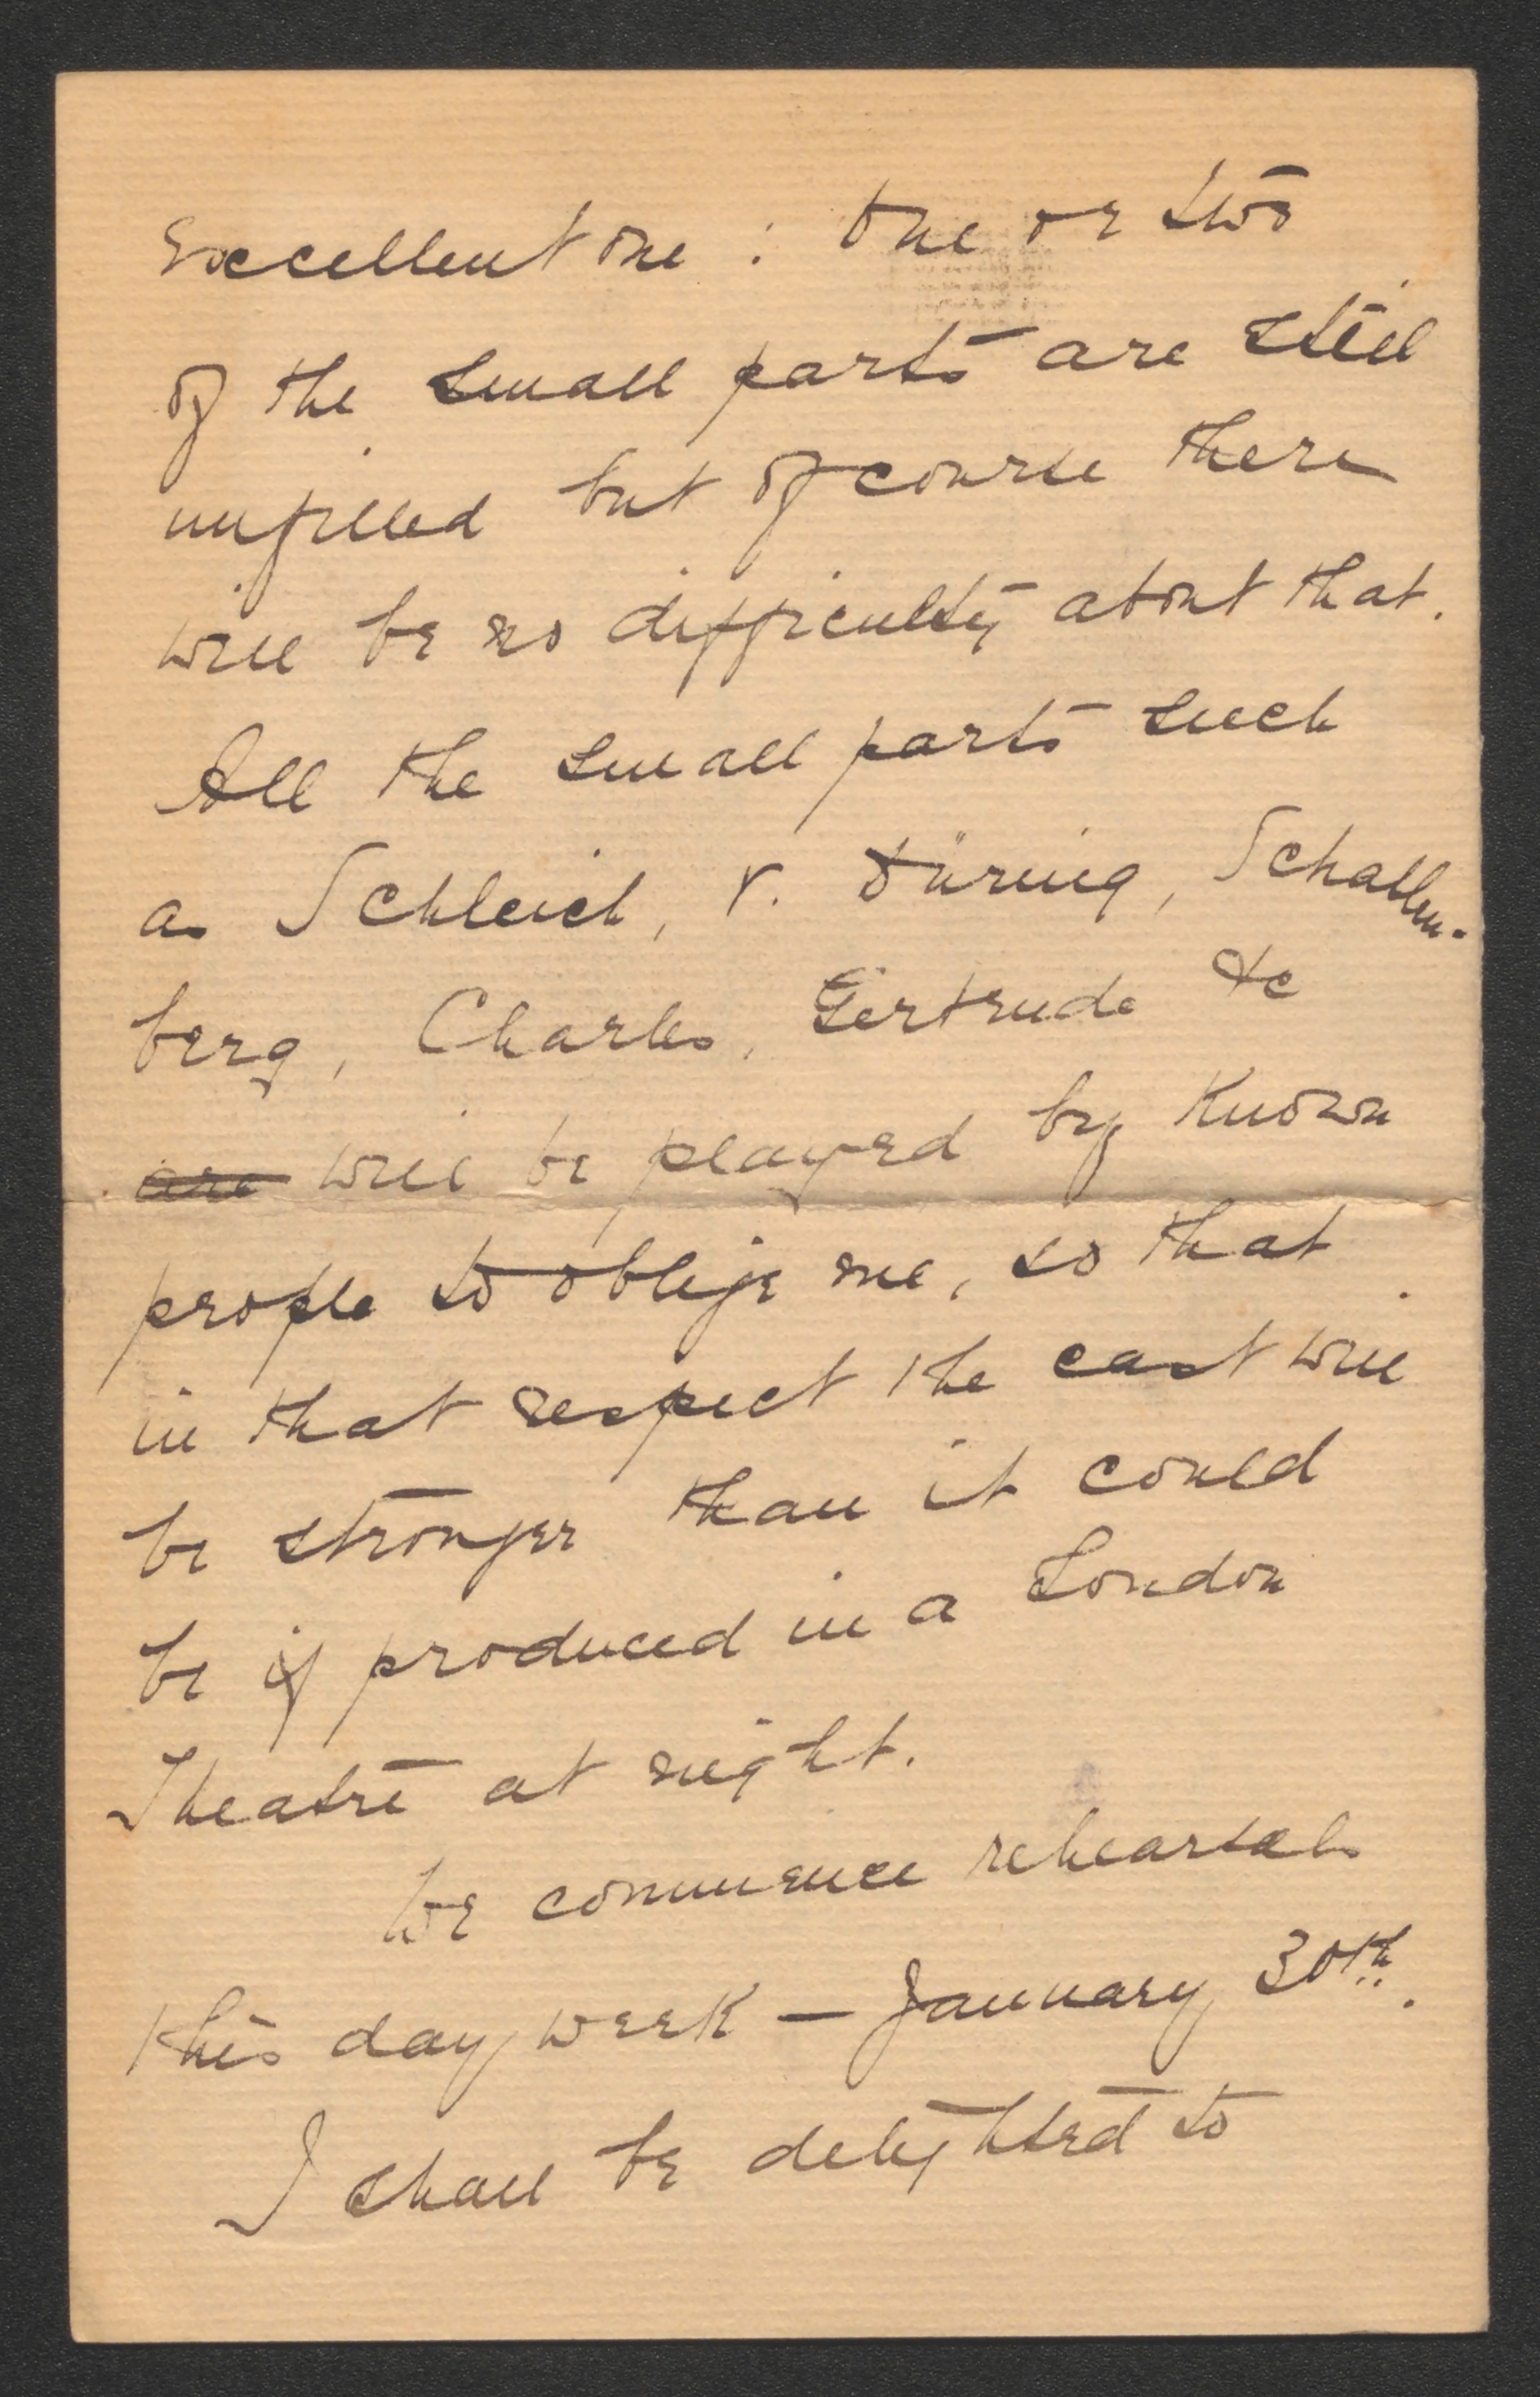 Excellent one : One or two
of the small parts are still
unfilled but of course there
will be no difficulty about that.
All the small parts such
as Schleich, v. Düring, Schallen-
berg, Charles, Gertrude &c
are will be played by known
people to oblige me, so that
in that respect the cast will
be stronger than it could
be if produced in a London
Theatre at night.
We commence rehearsals
this day week — January 30th.
I shall be delighted to